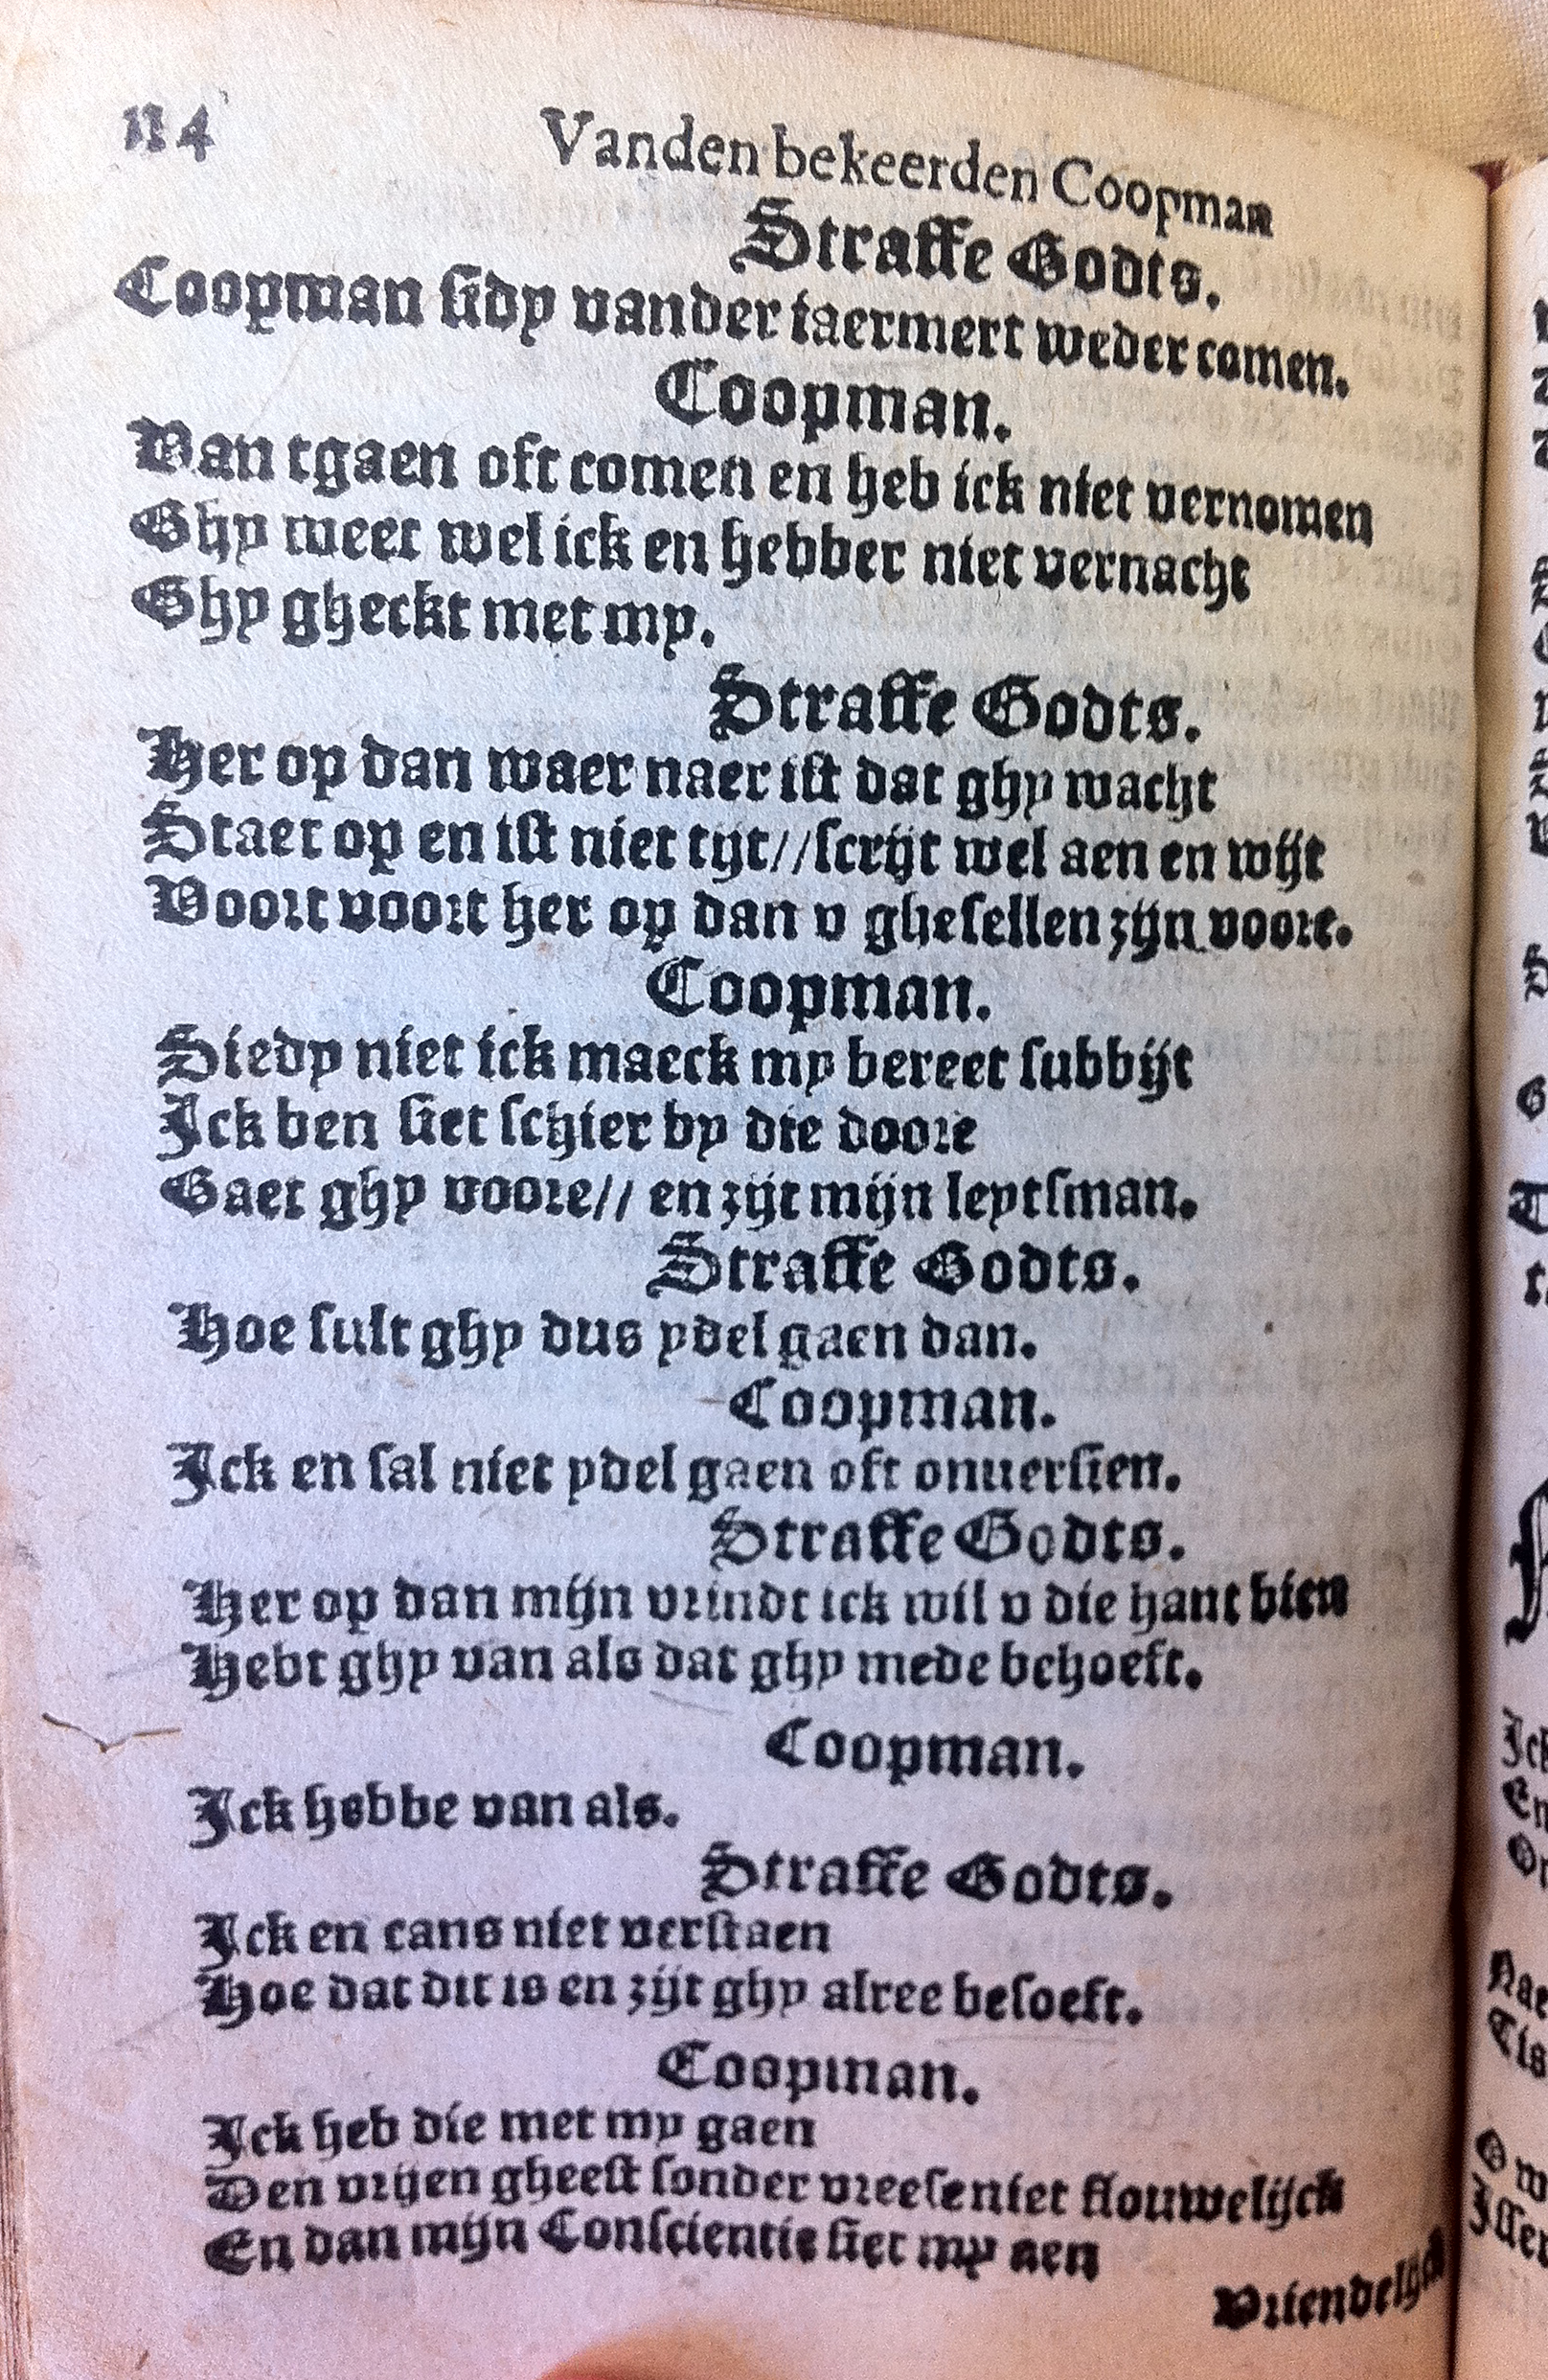 114
Vanden bekeerden Coopman
Straffe Godts.
Coopman sidy vander iaermert weder comen.
Coopman.
Van tgaen oft comen en heb ick niet vernomen
Ghy weet wel ick en hebber niet vernacht
Ghy gheckt met my.
Straffe Godts.
Her op dan waer naer ist dat ghy wacht
Staet op en ist niet tijt//scrijt wel aen en wijt
Voort voort her op dan v ghesellen zijn voore.
Coopman.
Siedy niet ick maeck my bereet subbijt
Ick ben siet schier by die doore
Gaet ghy voore// en zijt mijn leytsman.
Straffe Godts.
Hoe sult ghy dus ydel gaen dan.
Coopman.
Ick en sal niet ydel gaen oft onuersien.
Straffe Godts.
Her op dan mijn vrindt ick wil v die hant bien
Hebt ghy van als dat ghy mede behoeft.
Coopman.
Ick hebbe van als.
Straffe Godts.
Ick en cans niet verstaen
Hoe dat dit is en zijt ghy alree besoeft.
Coopman.
Ick heb die met my gaen
Den vrijen gheest sonder vreese niet flouwelijck
En dan mijn Conscientie siet my aen
Vriendelijck